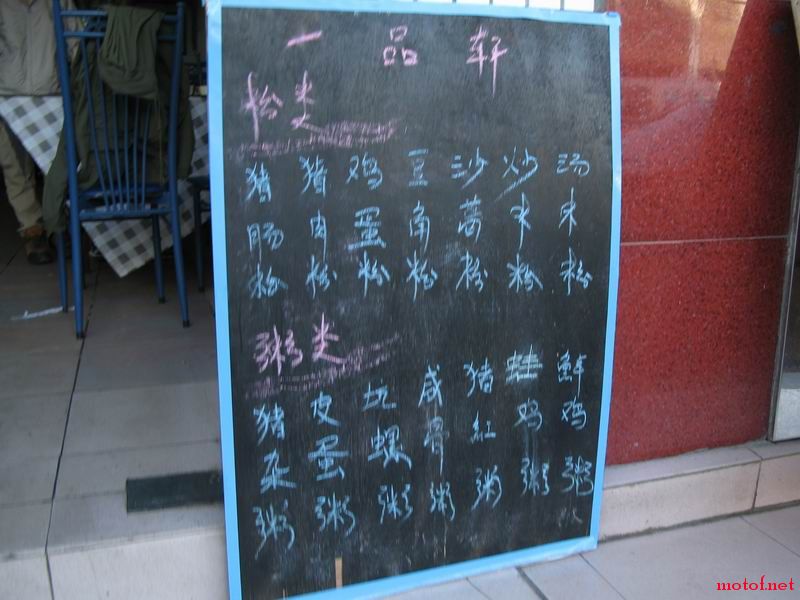 一品轩
粉类
猪肠粉
猪肉粉
鸡蛋粉
豆角粉
沙葛粉
炒米粉
汤米粉
粥类
猪杂粥
皮蛋粥
坑螺粥
咸骨粥
猪红粥
鸡粥
鲜鸡粥
motof.net